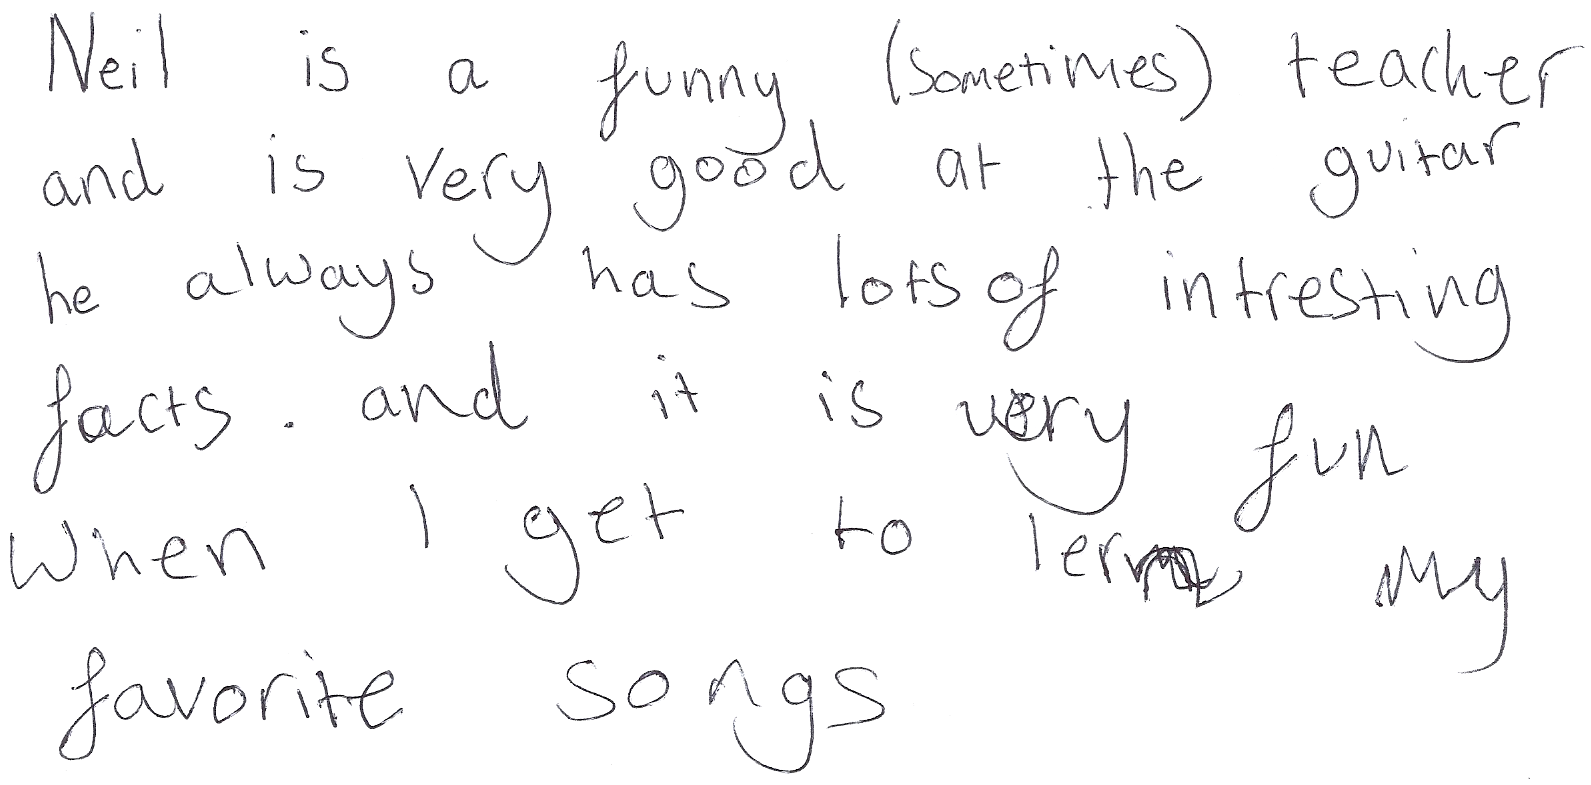 Neil is a funny (sometimes) teacher
and is very good at the guitar
he always has lots of intresting
facts. and it is very fun
When I get to lern my
favorite songs